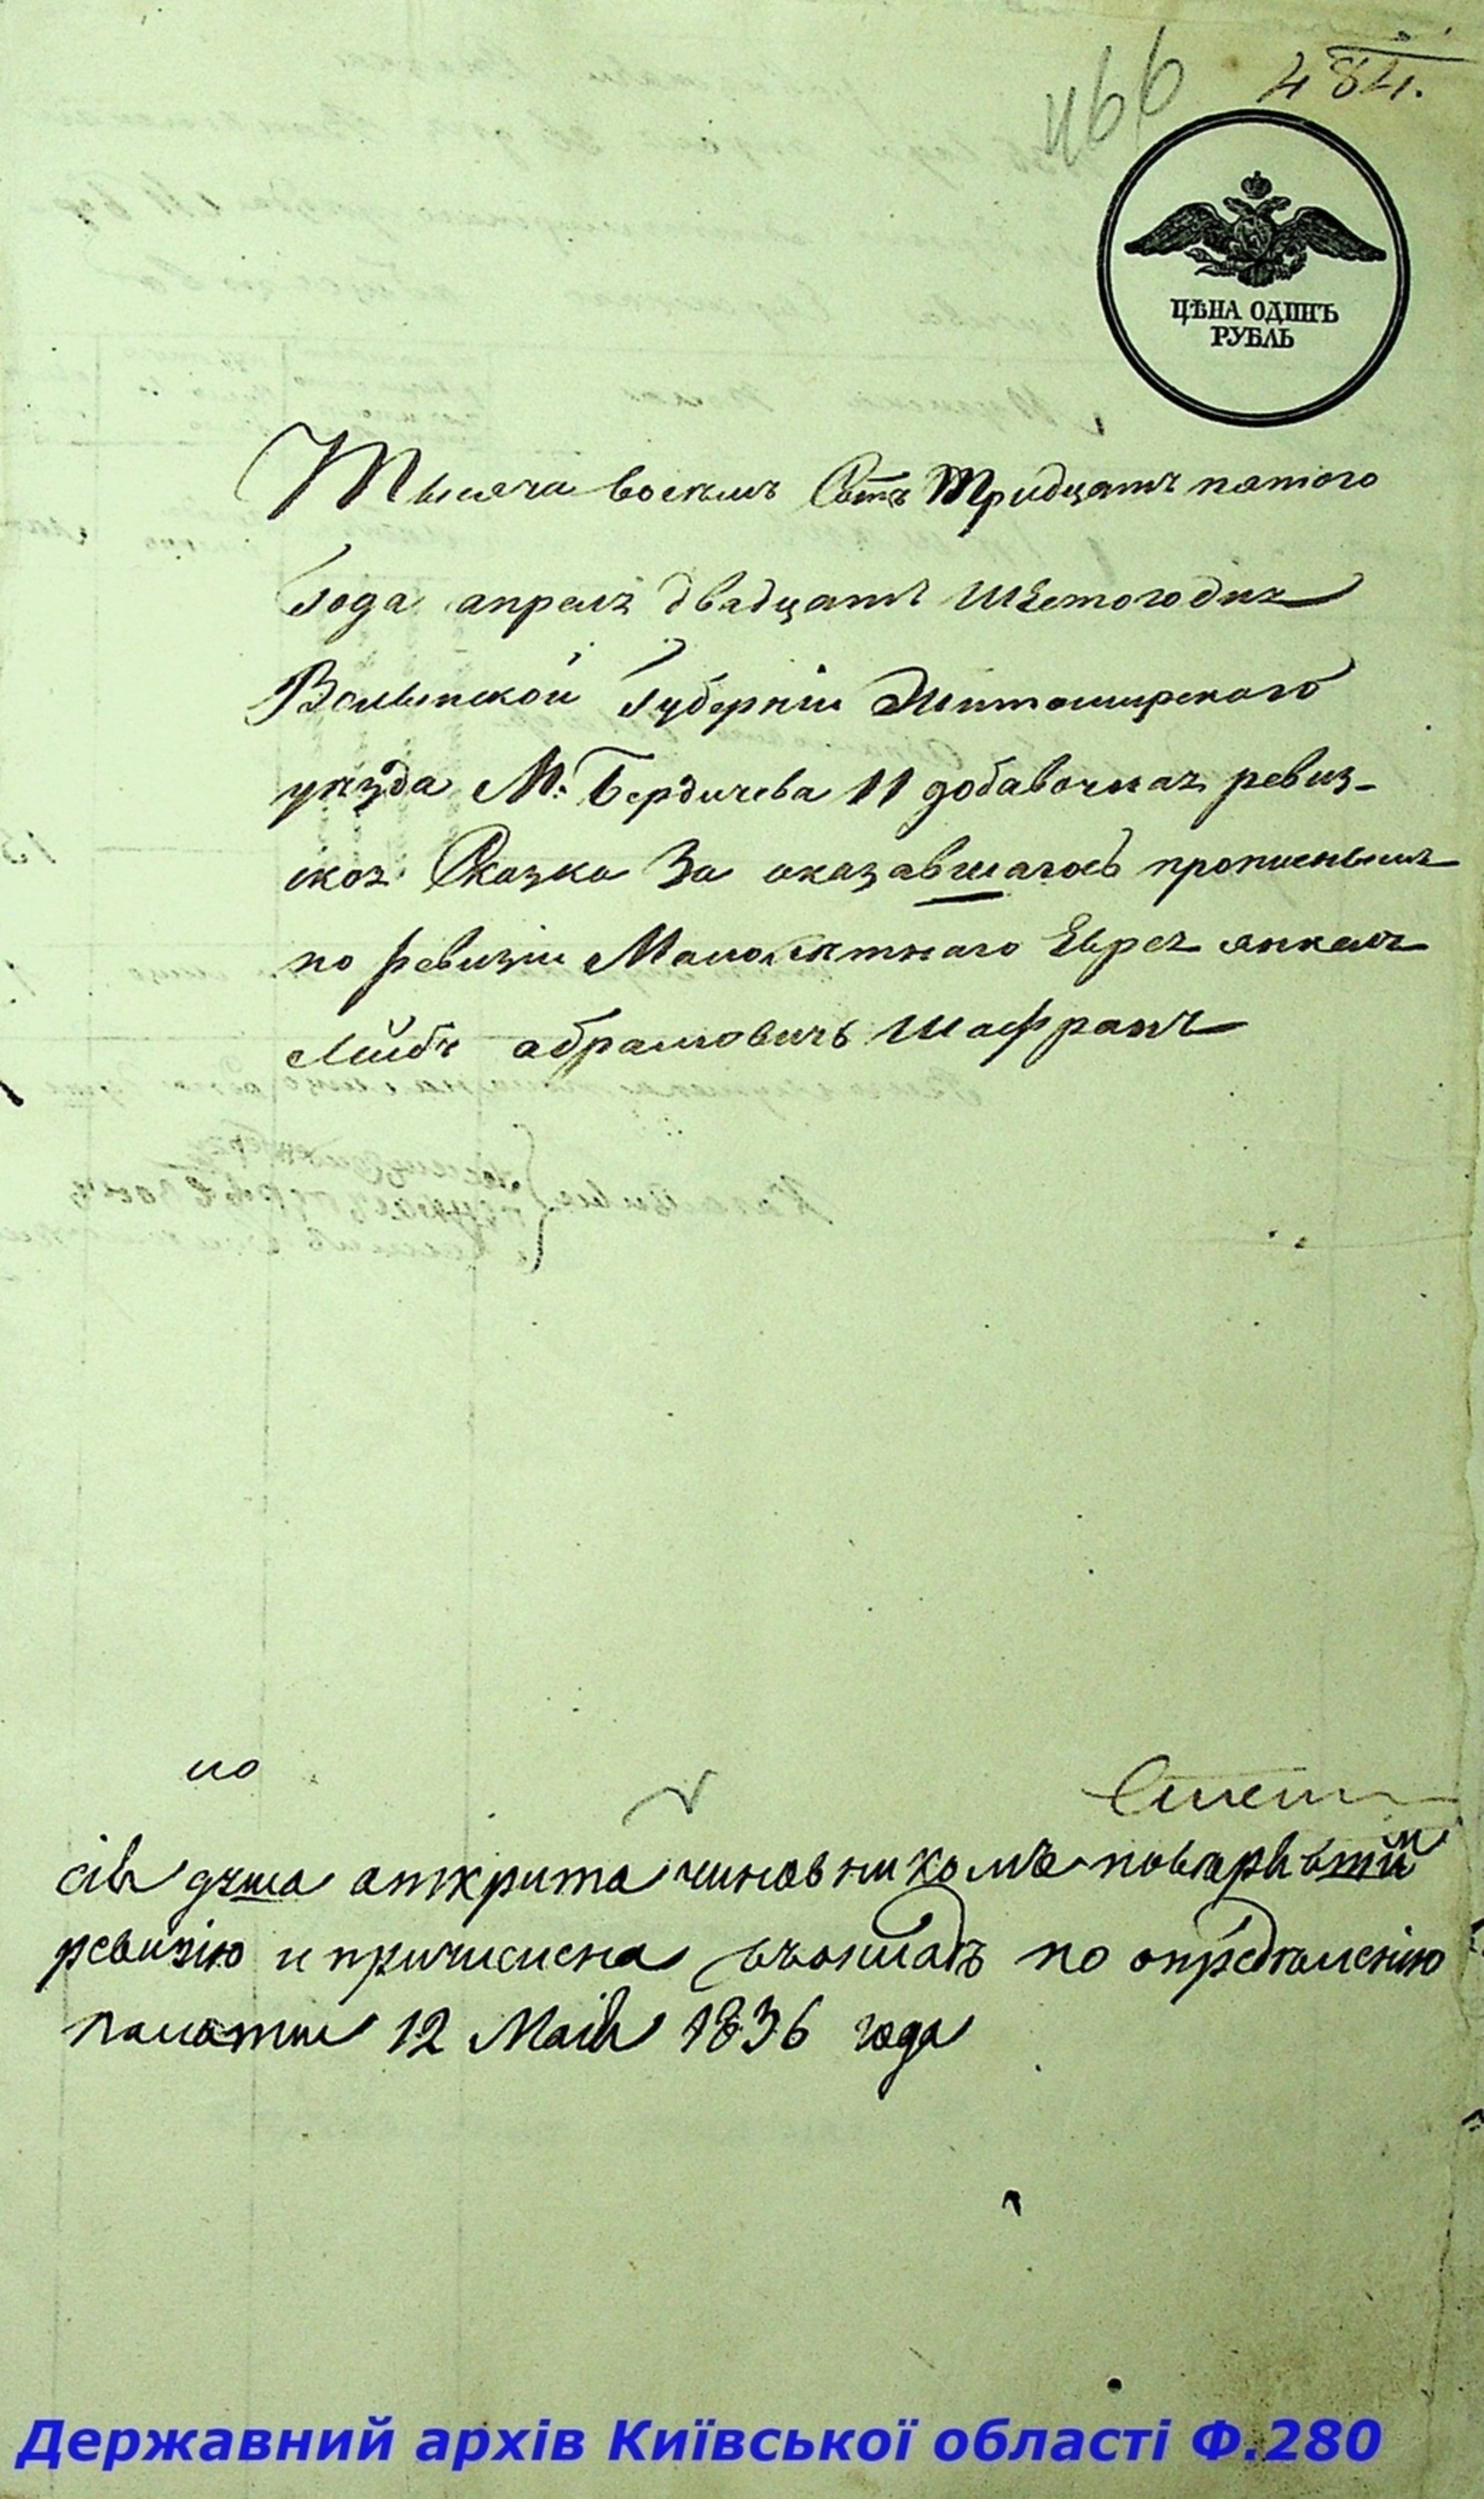 466
484.
ЦѢНА ОДИНЪ
РУБЛЬ
Тысяча восемъ Сотъ Тридцать пятого
Года апреля двадцать шестого дня
Волынской Губерніи Житомирского
уѣзда М. Бердичева 11 добавочная ревиз-
ская Сказка За оказавшагось прописнымъ
по ревизіи Малолѣтнаго Еврея янкеля
Лейбу абрамовичъ Шафранъ
по
сія душа аткрита чиновникомъ повѣрявши
ревизію и причислена въокладъ по опредѣленію
палаты 12 Маія 1836 года
Державний архів Київської області Ф.280